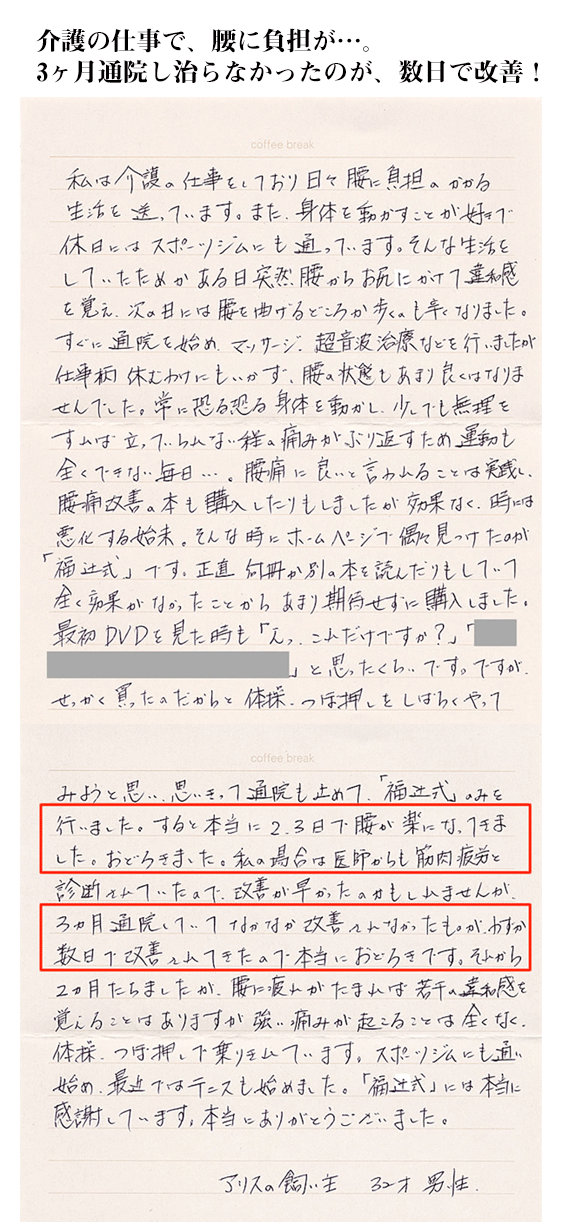 介護の仕事で、腰に負担が…。
3ヶ月通院し治らなかったのが、数日で改善！
coffee break
私は介護の仕事をしており日々腰に負担のかかる
生活を送っています。また、身体を動かすことが好きで
休日にはスポーツジムにも通っています。そんな生活を
していたためかある日突然腰からお尻にかけて違和感
を覚え、次の日には腰を曲げるどころか歩くのも辛くなりました。
すぐに通院を始め、マッサージ、超音波治療などを行いましたが
仕事柄休むわけにもいかず、腰の状態もあまり良くはなりま
せんでした。常に恐る恐る身体を動かし、少しでも無理を
すれば立っていられない程の痛みがぶり返すため運動も
全くできない毎日…。腰痛に良いと言われることは実践し、
腰痛改善の本も購入したりもしましたが効果なく、時には
悪化する始末。そんな時にホームページで偶々見つけたのが
「福辻式」です。正直何冊か別の本を読んだりもしていて
全く効果がなかったことからあまり期待せずに購入しました。
最初DVDを見た時も「えっ、これだけですか？」「
」と思ったくらいです。ですが、
せっかく買ったのだからと体操、つぼ押しをしばらくやって
coffee break
みようと思い、思いきって通院も止めて、「福辻式」のみを
行いました。すると本当に2、3日で腰が楽になってきま
した。おどろきました。私の場合は医師からも筋肉疲労と
診断されていたので、改善が早かったのかもしれませんが、
3ヵ月通院していてなかなか改善されなかったものが、わずか
数日で改善されてきたので本当におどろきです。それから
2ヵ月たちましたが、腰に疲れがたまれば若干の違和感を
覚えることはありますが強い痛みが起こることは全くなく、
体操、つぼ押しで乗り切れています。スポーツジムにも通い
始め、最近ではテニスも始めました。「福辻式」には本当に
感謝しています。本当にありがとうございました。
アリスの飼い主 32才 男性.